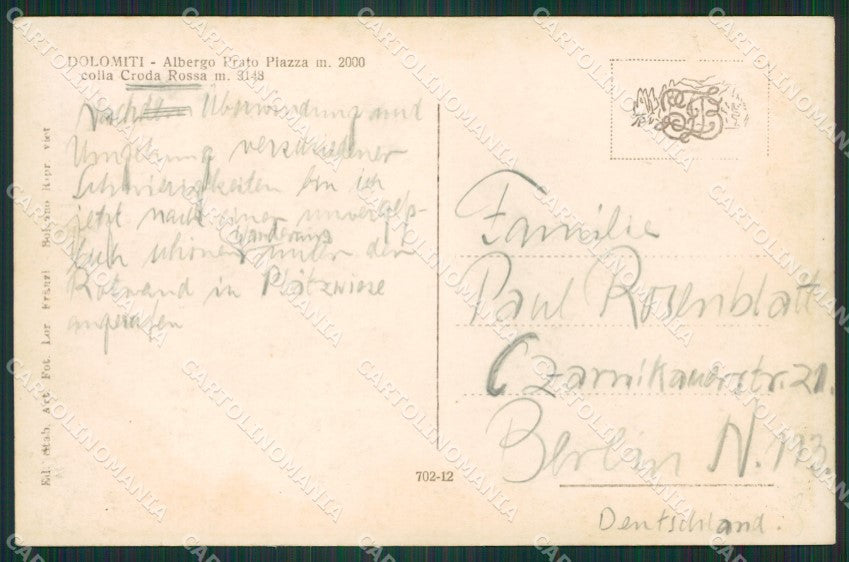 DOLOMITI - Albergo Prato Piazza m. 2000
colla Croda Rossa m. 3148
Nach Überwindung und
Umgehung verschiedener
Schwierigkeiten bin ich
jetzt nach einer unvergess-
lich schönen Wanderung unter der
Rotwand in Plätzwiese
angekommen
Ed. Stab. Art. Fot. Lor. Fränzl Bolzano Ripr. viet.
702-12
Familie
Paul Rosenblatt
Czarnikauerstr. 21.
Berlin N. 113.
Deutschland.
CARTOLINOMANIA